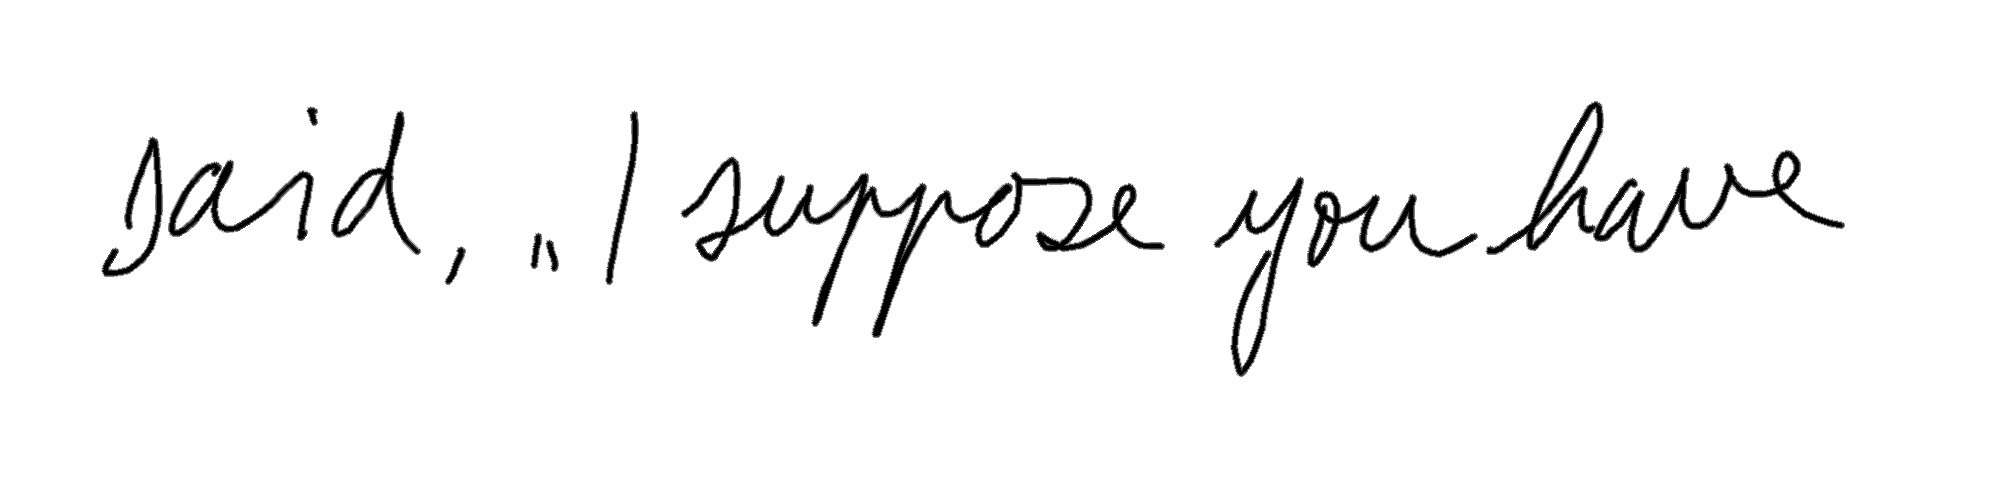 said, „I suppose you have